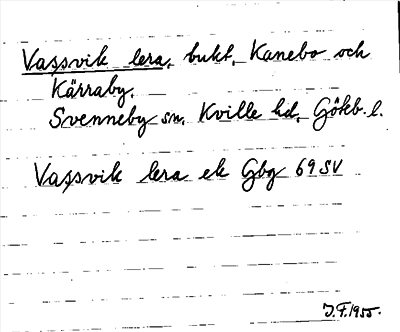 Vassvik lera, bukt, Kanebo och
Kärraby,
Svenneby sn, Kville hd, Götb. l.
Vassvik lera ek Gbg 69 SV
J.F. 1955.